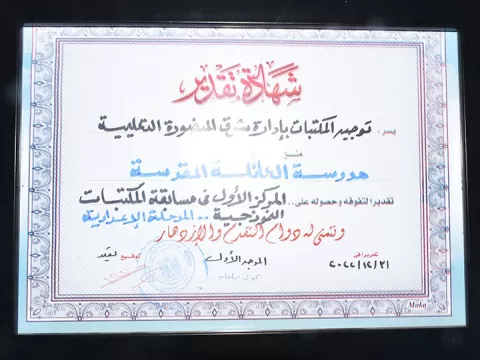 شهادة تقدير
يسر: توجيه المكتبات بإدارة شرق المنصورة التعليمية
منح
مدرسة العائلة المقدسة
تقديرا لتفوقه وحصوله على.. المركز الأول فى مسابقة المكتبات
النموذجية .. المرحلة الإعدادية
ونتمنى له دوام التقدم والإزدهار
تحريرا فى
٢٠٢٢/١٢/٢١
الموجه الأول
توقيع
Maka